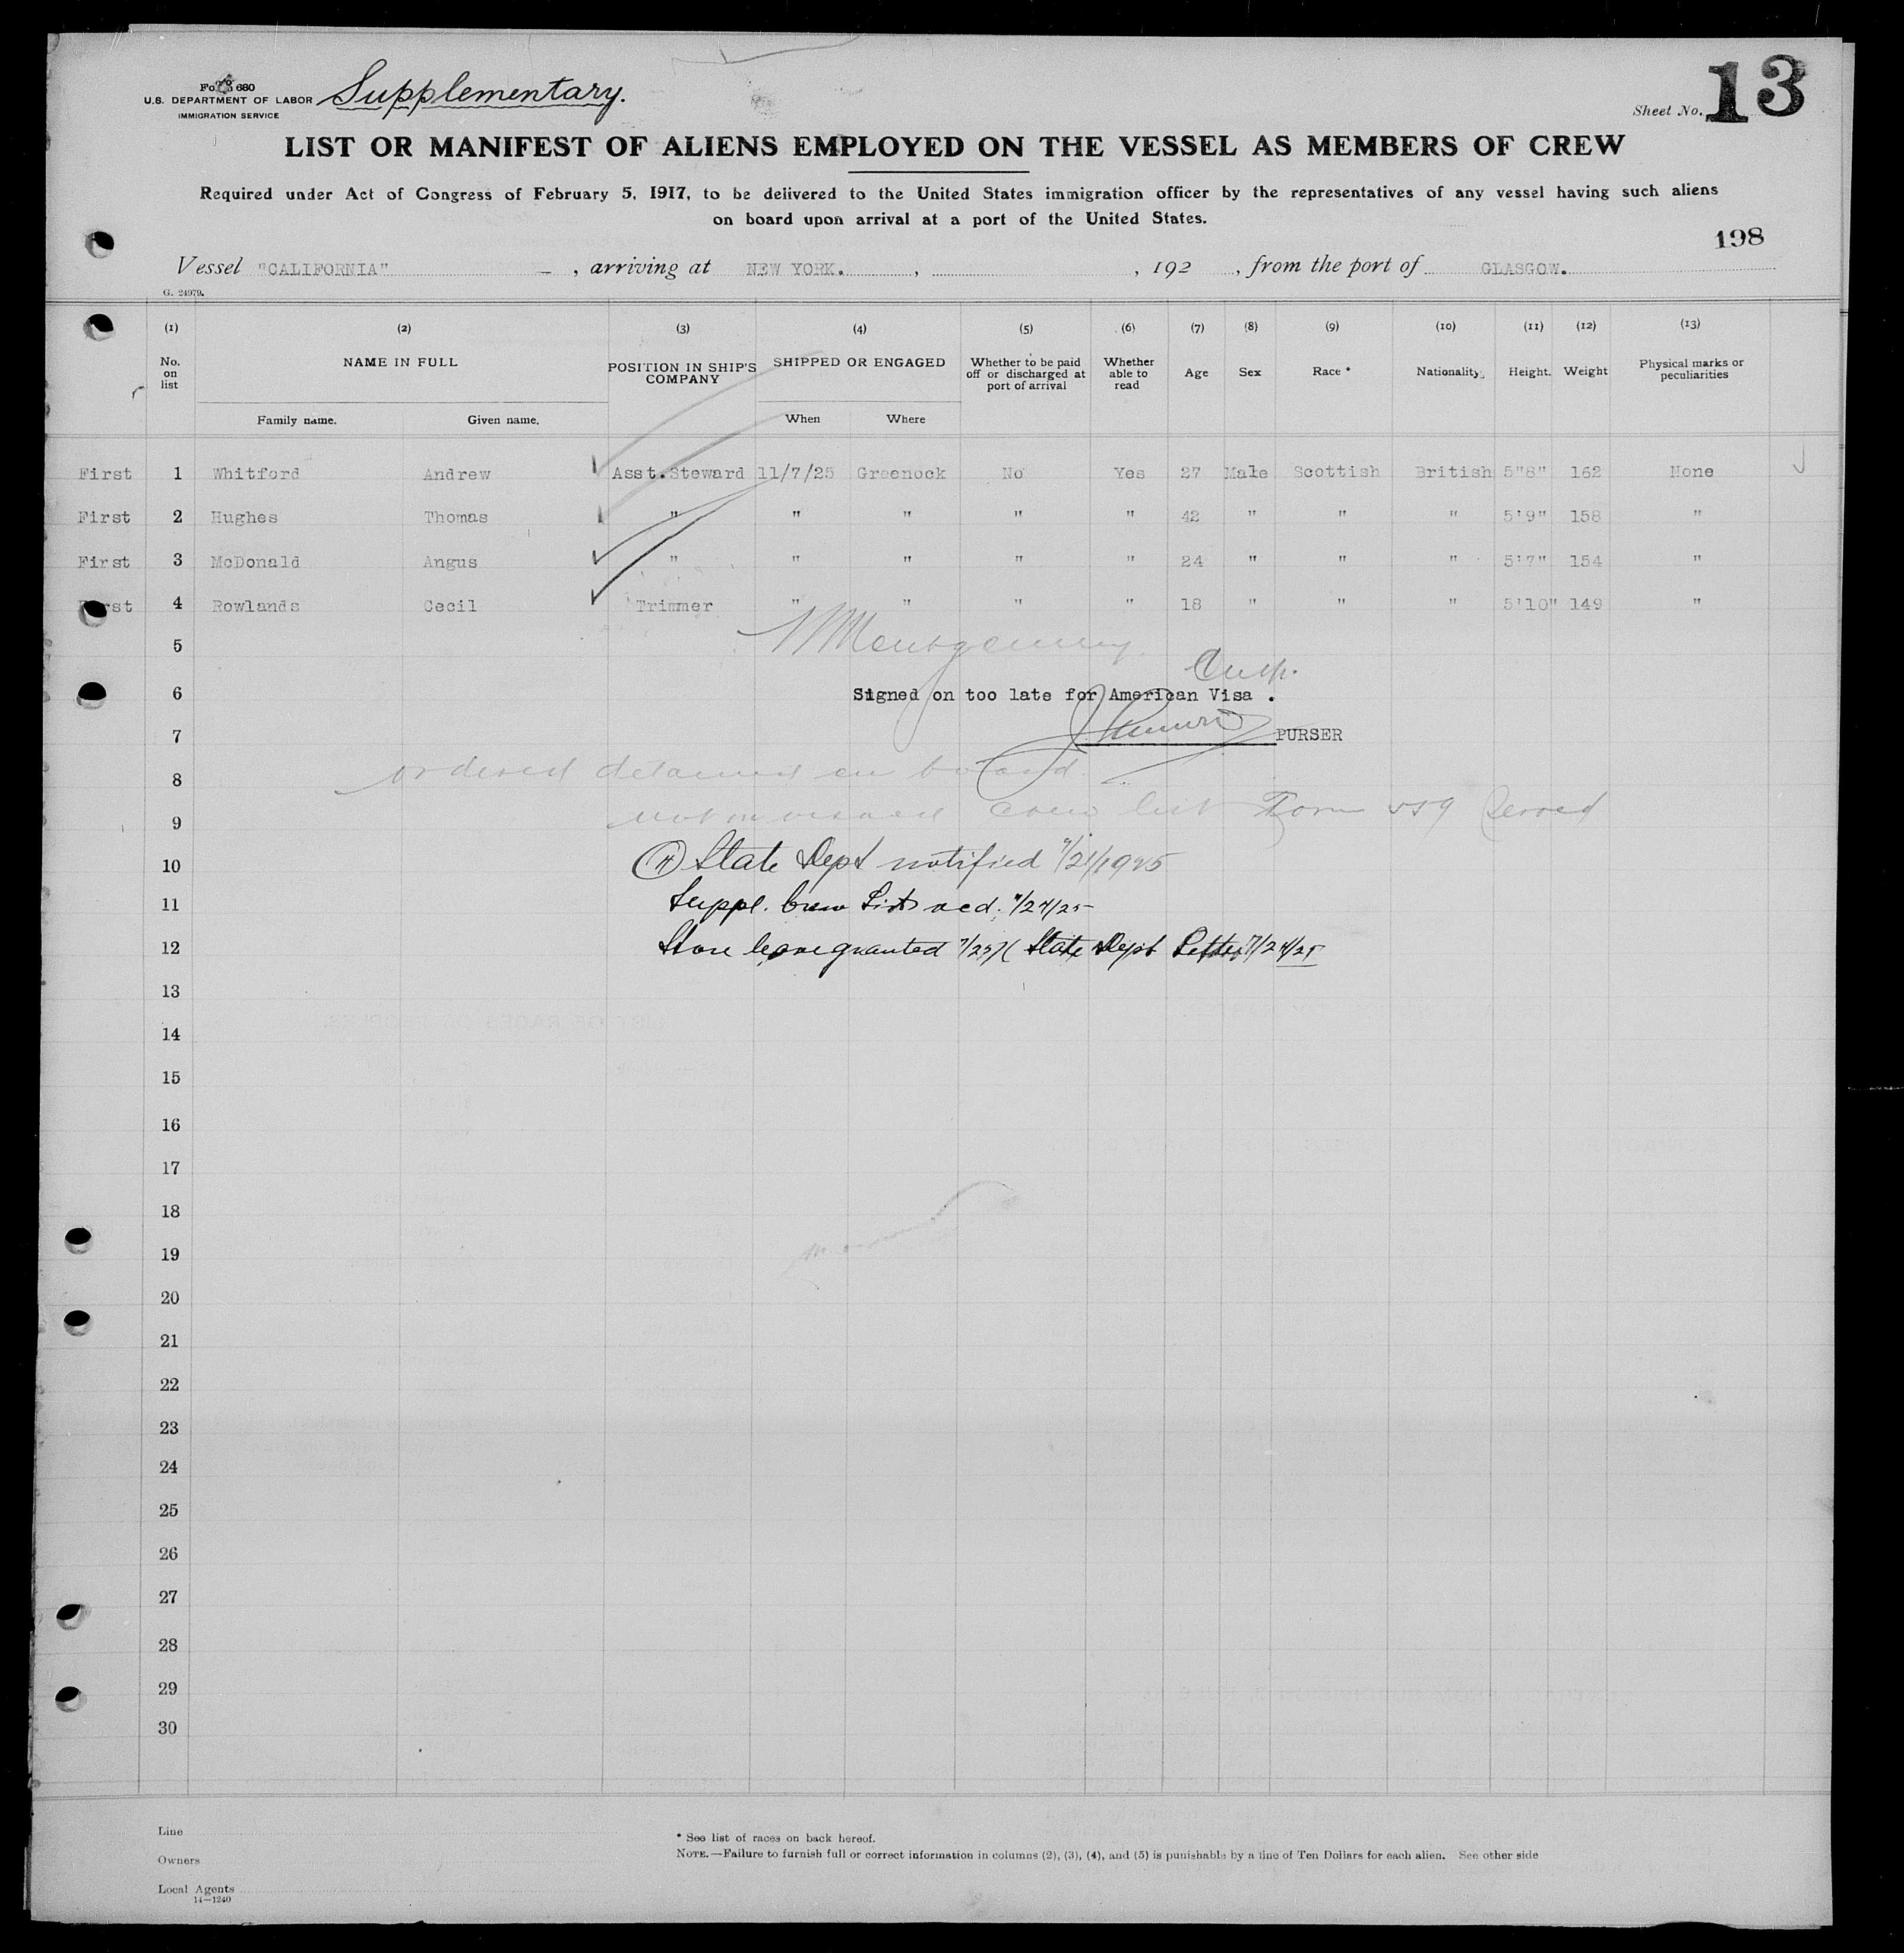 Form 680
U.S. DEPARTMENT OF LABOR
IMMIGRATION SERVICE
Supplementary.
Sheet No. 13
LIST OR MANIFEST OF ALIENS EMPLOYED ON THE VESSEL AS MEMBERS OF CREW
Required under Act of Congress of February 5, 1917, to be delivered to the United States immigration officer by the representatives of any vessel having such aliens
on board upon arrival at a port of the United States.
198
Vessel "CALIFORNIA" , arriving at NEW YORK. , , 192 , from the port of GLASGOW.
G. 24979.
(1) (2) (3) (4) (5) (6) (7) (8) (9) (10) (11) (12) (13)
No. on list NAME IN FULL POSITION IN SHIP'S COMPANY SHIPPED OR ENGAGED Whether to be paid off or discharged at port of arrival Whether able to read Age Sex Race * Nationality Height. Weight Physical marks or peculiarities
Family name. Given name. When Where
First 1 Whitford Andrew Asst.Steward 11/7/25 Greenock No Yes 27 Male Scottish British 5"8" 162 None
First 2 Hughes Thomas " " " " " 42 " " " 5'9" 158 "
First 3 McDonald Angus " " " " " 24 " " " 5'7" 154 "
First 4 Rowlands Cecil Trimmer " " " " 18 " " " 5'10" 149 "
5 Montgomery
6 Signed on too late for American Visa .
7 PURSER
8 ordered detained on board
9 not on visaed crew list Form 559 Served
10 State Dept notified 7/21/1925
11 Suppl. Crew List rec'd. 7/24/25
12 Shore leave granted 7/25 ( State Dept Letter 7/24/25
13
14
15
16
17
18
19
20
21
22
23
24
25
26
27
28
29
30
Line
Owners
Local Agents
14—1240
* See list of races on back hereof.
NOTE.—Failure to furnish full or correct information in columns (2), (3), (4), and (5) is punishable by a fine of Ten Dollars for each alien. See other side